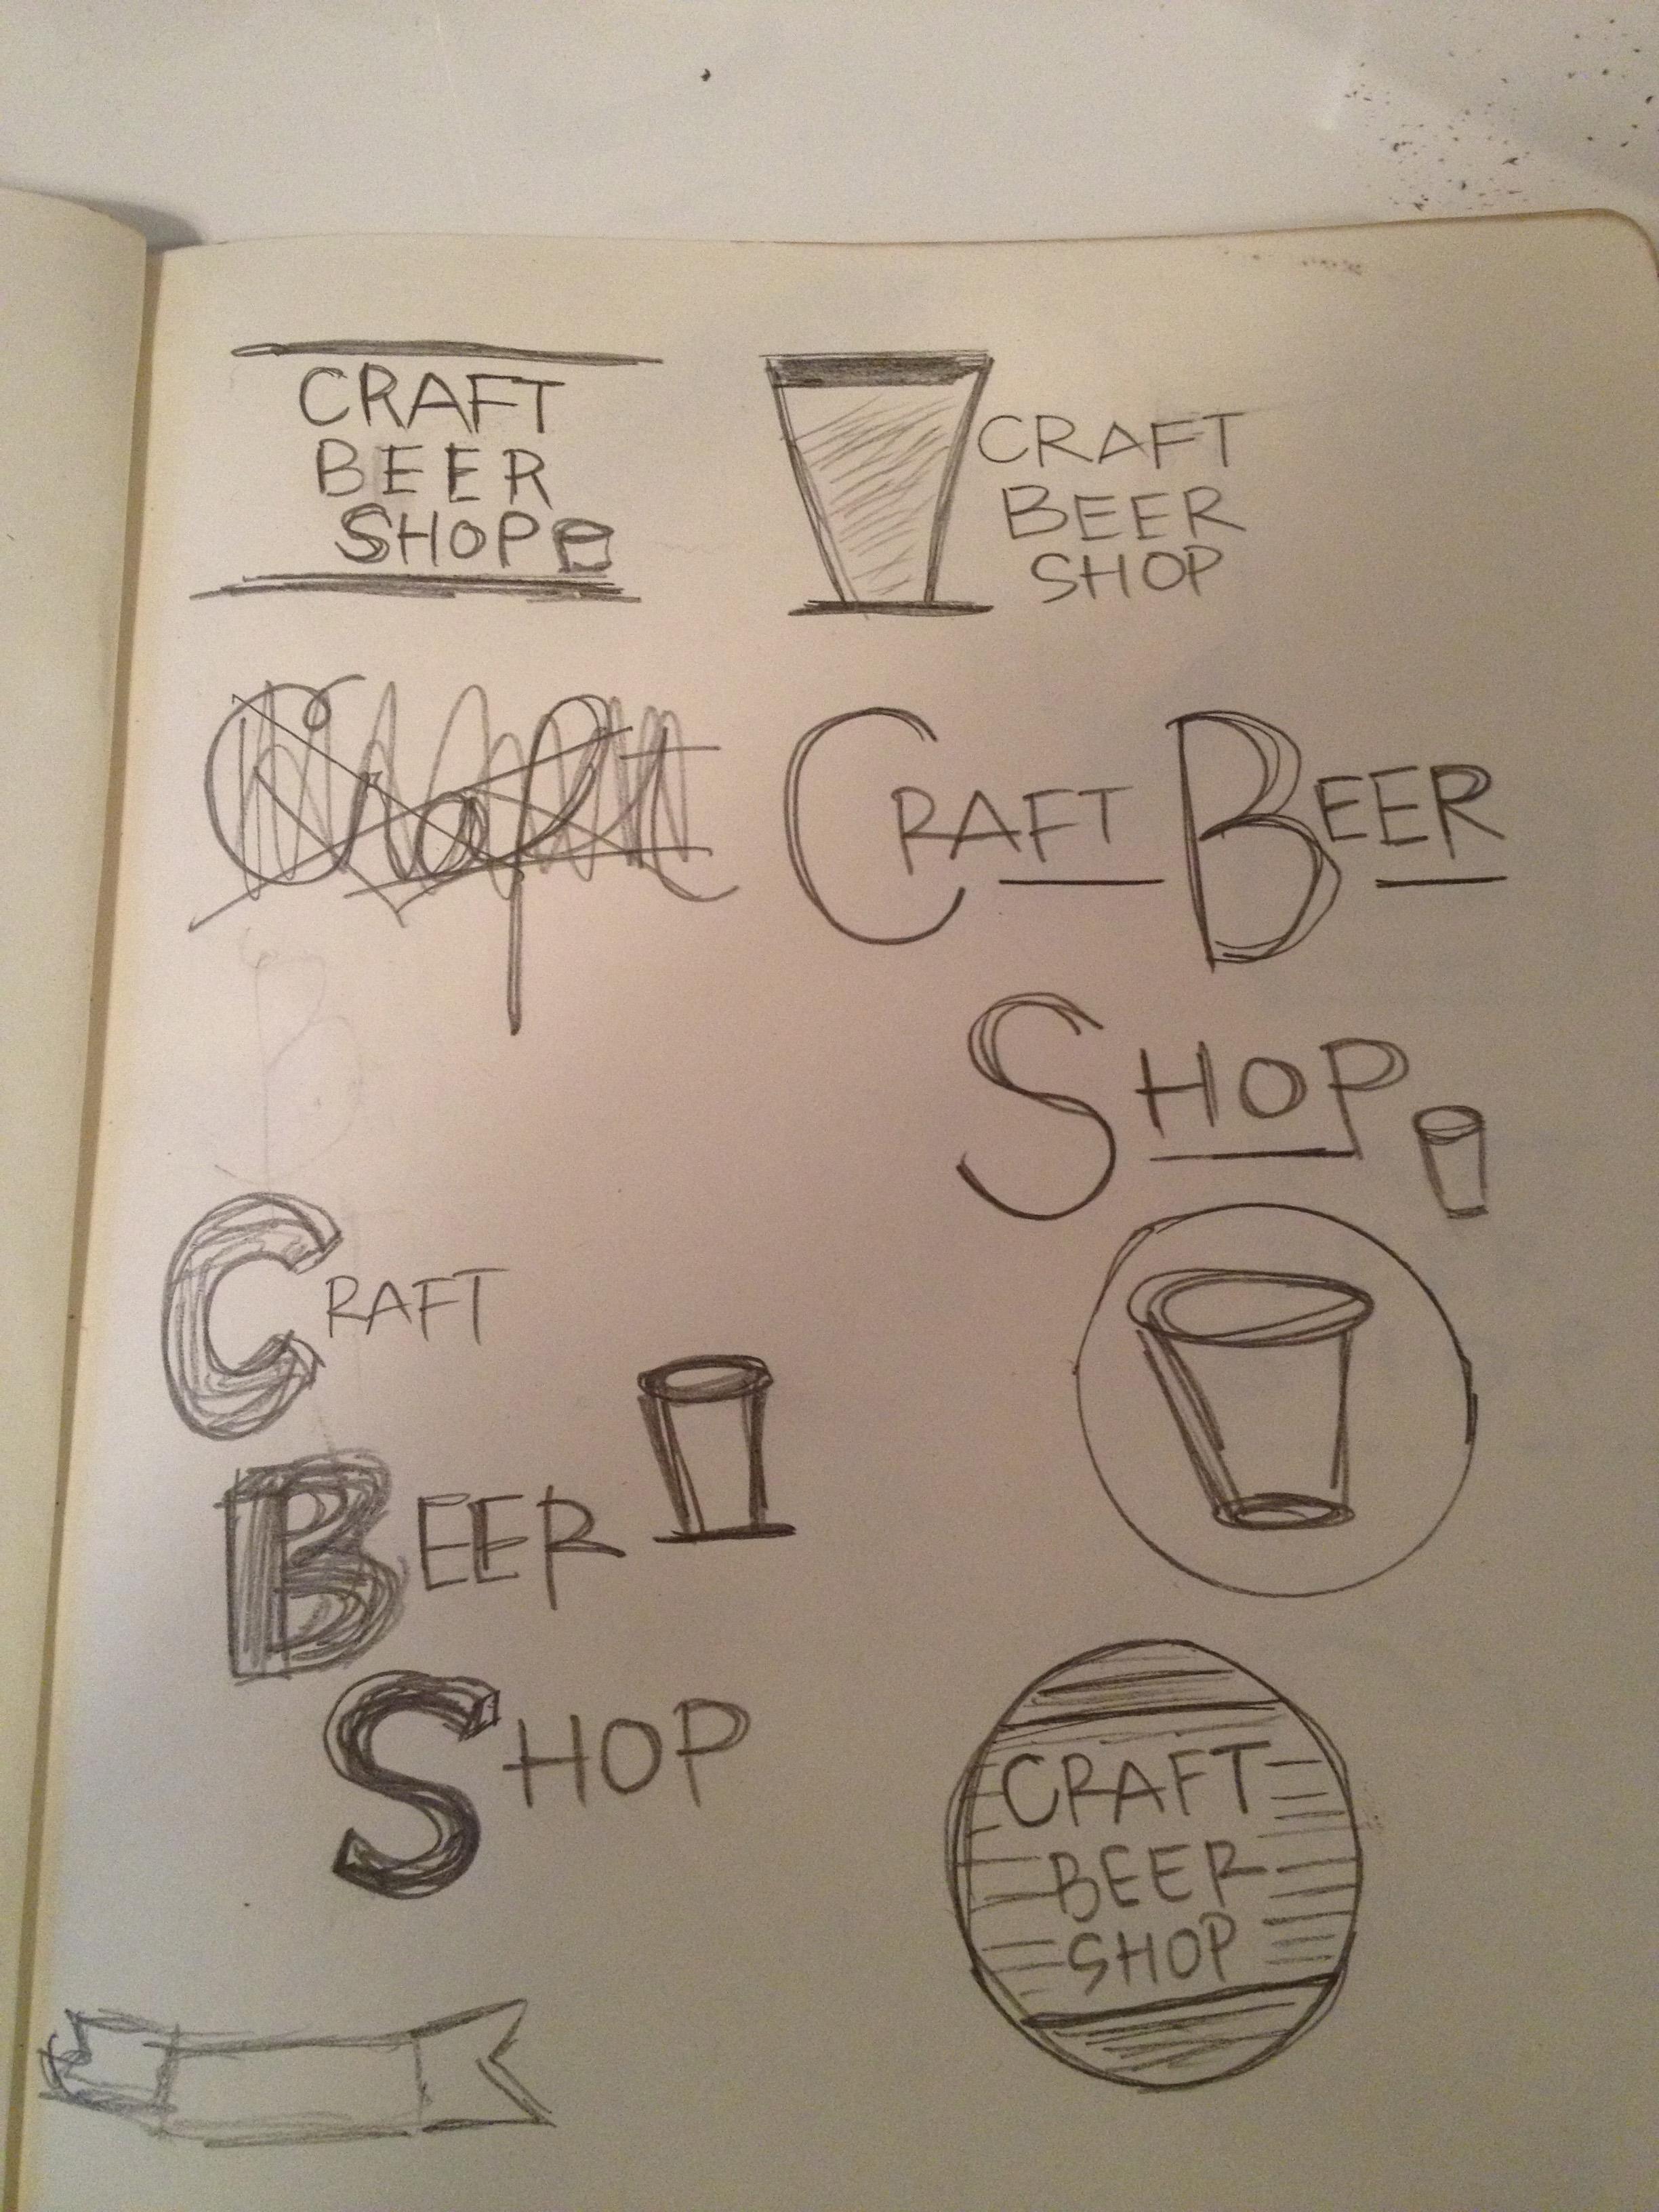 CRAFT
BEER
SHOP
CRAFT
BEER
SHOP
Craft
CRAFT BEER
SHOP
CRAFT
BEER
SHOP
CRAFT
BEER
SHOP